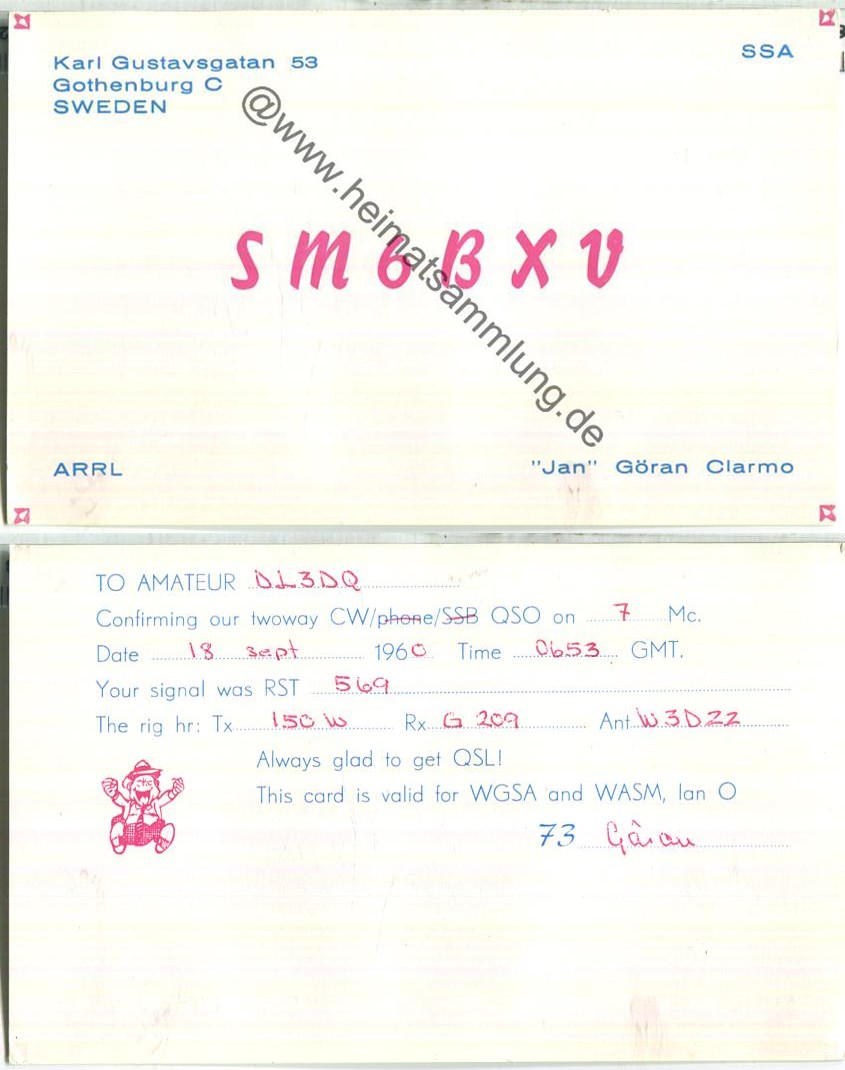 Karl Gustavsgatan 53
Gothenburg C
SWEDEN
SSA
@www.heimatsammlung.de
SM6BXV
ARRL
"Jan" Göran Clarmo
TO AMATEUR DL3DQ
Confirming our twoway CW/phone/SSB QSO on 7 Mc.
Date 18 sept 1960 Time 0653 GMT.
Your signal was RST 569
The rig hr: Tx 150 W Rx G 209 Ant W3DZZ
Always glad to get QSL!
This card is valid for WGSA and WASM, lan O
73 Göran